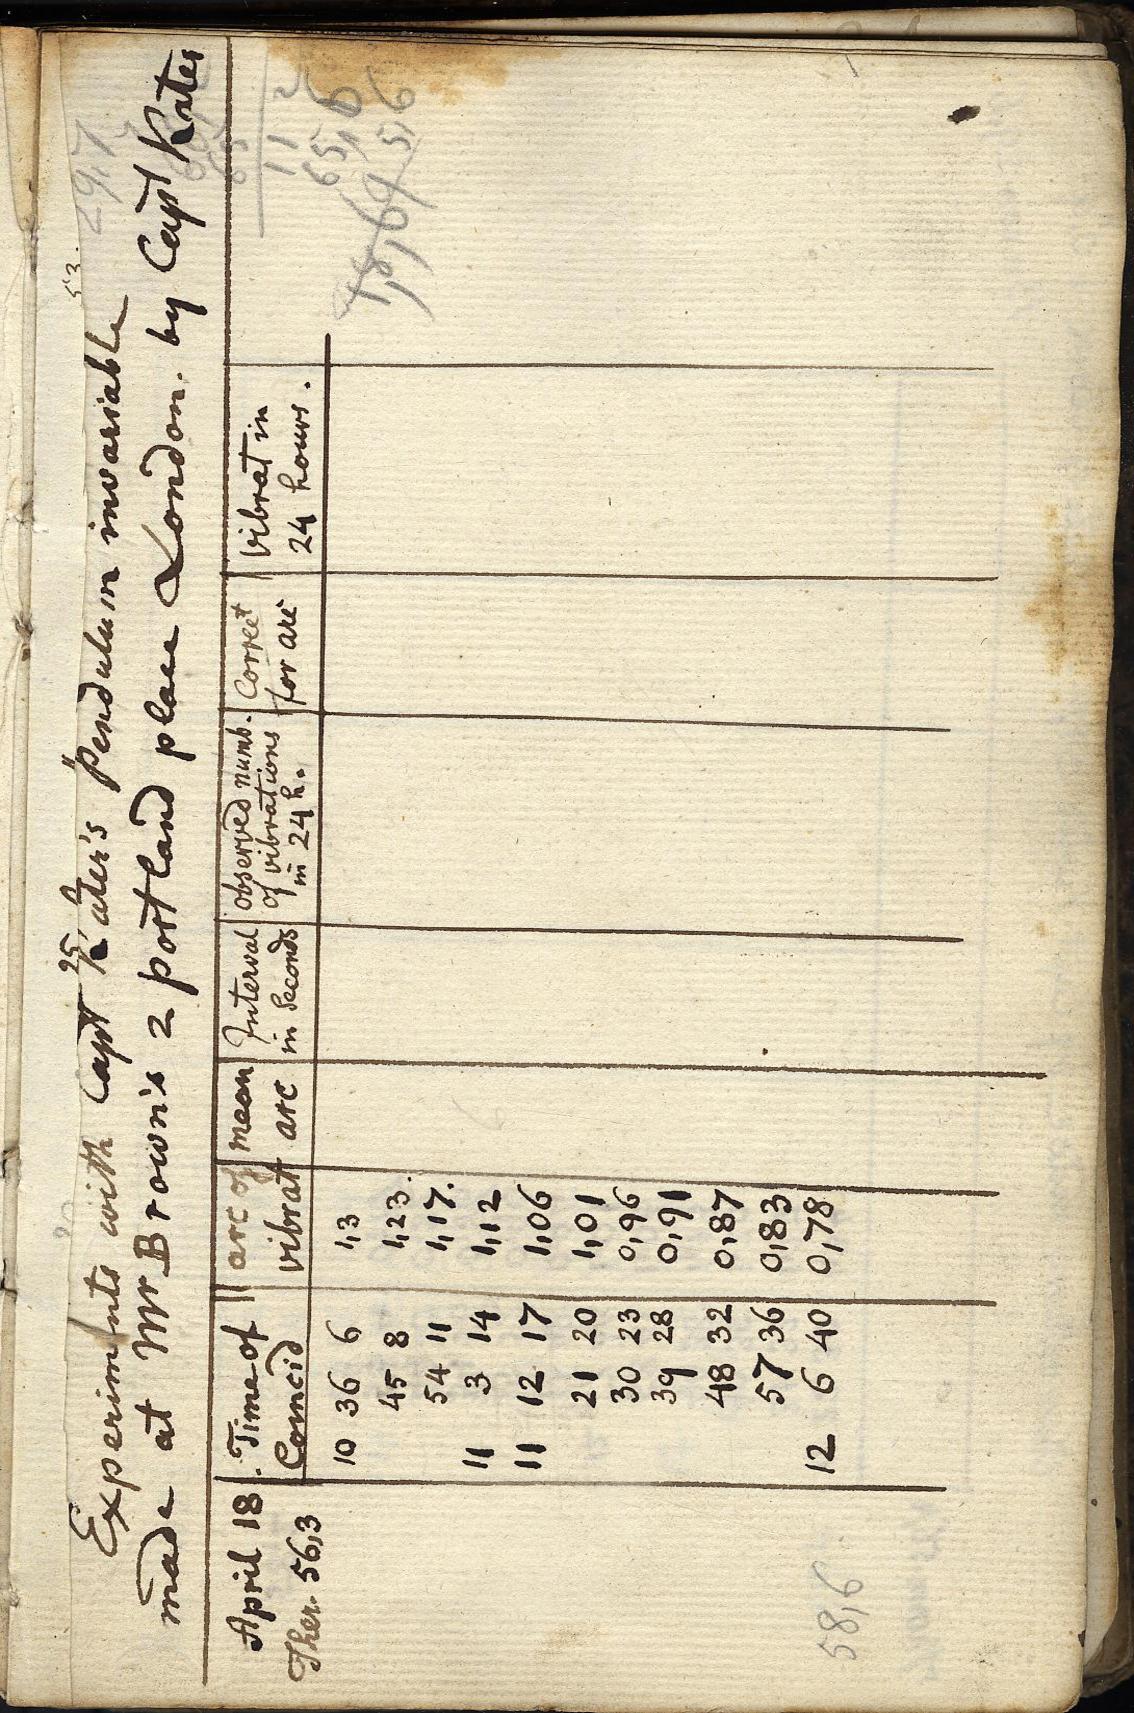 Experiments with Capt Kater's Pendulum invariable
made at Mr Brown's 2 portland place London. by Capt Kater
April 18 Time of arc of mean Interval observed numb. Correct vibrat in
Ther. 56,3 Coincid vibrat arc in seconds of vibrations for arc 24 hours.
in 24 h.
10 36 6 1,3
45 8 1,23.
54 11 1,17.
11 3 14 1,12
11 12 17 1,06
21 20 1,01
30 23 0,96
39 28 0,91
48 32 0,87
57 36 0,83
12 6 40 0,78
58,6
53.
25
29,7
11 2
65,6